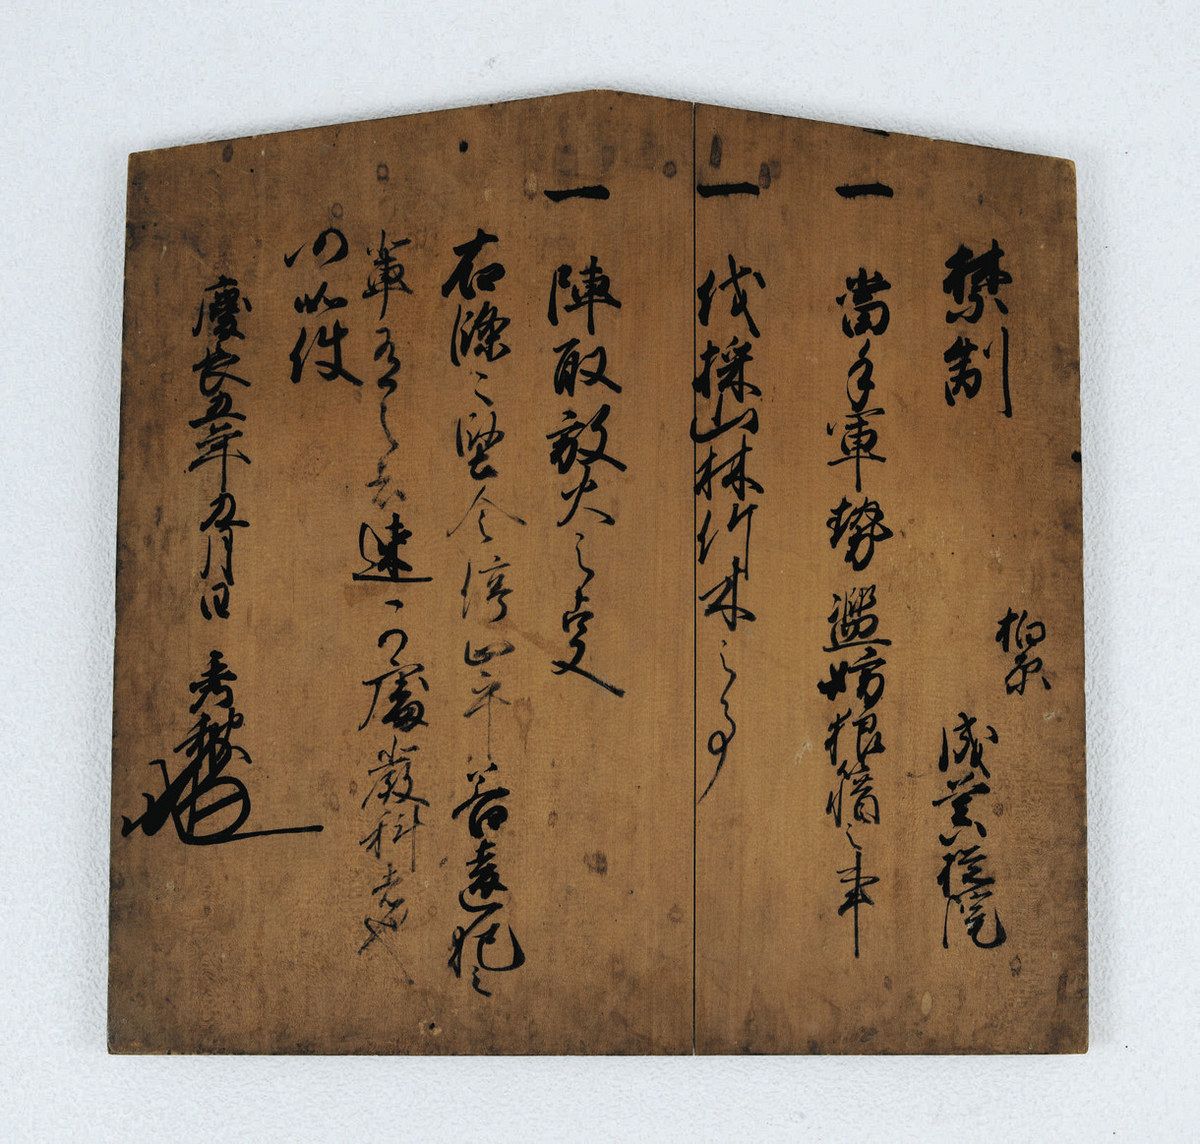 禁制
柏原
成菩提院
一 當手軍勢濫妨狼籍之事
一 伐採山林竹木之事
一 陣取放火之叓
右條々堅令停止畢若違犯之
輩有之者速可處嚴科者也
仍如件
慶長五年九月日 秀龝